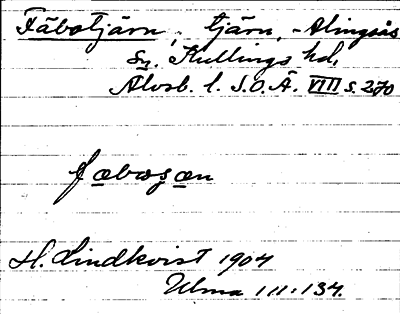 Fäbotjärn, tjärn, Alingsås
sn. Kullings hd,
Älvsb. l. S.O.Ä. VIII s. 270
fæbosæn
H. Lindkvist 1904
Ulma 111:134.